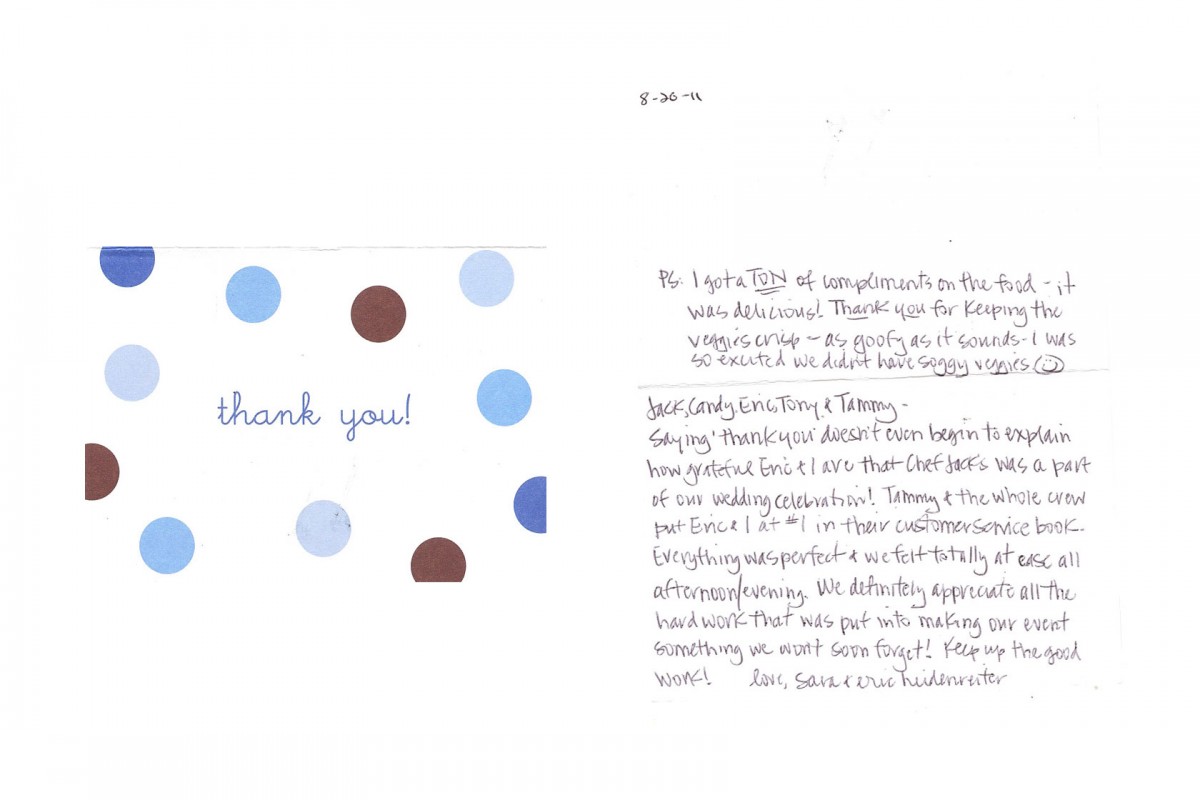 thank you!
8-20-11
PS: I got a TON of compliments on the food - it
was delicious! Thank you for keeping the
veggies crisp - as goofy as it sounds - I was
so excited we didn't have soggy veggies
Jack, Candy, Eric, Tony & Tammy -
Saying 'thank you' doesn't even begin to explain
how grateful Eric & I are that Chef Jack's was a part
of our wedding celebration! Tammy & the whole crew
put Eric & I at #1 in their customer service book.
Everything was perfect & we felt totally at ease all
afternoon/evening. We definitely appreciate all the
hard work that was put into making our event
something we won't soon forget! Keep up the good
work! love, Sara & Eric Heidenreiter